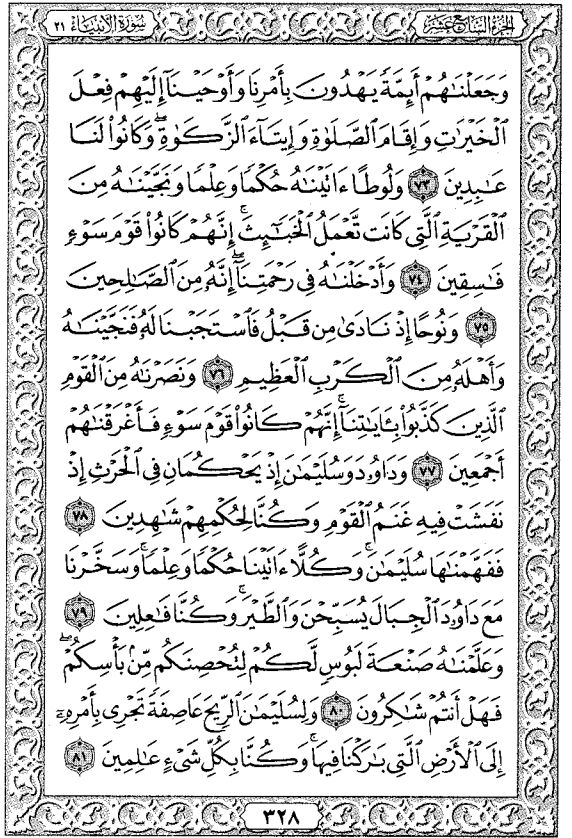 الجزء السابع عشر
سورة الأنبياء ٢١
وَجَعَلْنَٰهُمْ أَئِمَّةً يَهْدُونَ بِأَمْرِنَا وَأَوْحَيْنَآ إِلَيْهِمْ فِعْلَ
ٱلْخَيْرَٰتِ وَإِقَامَ ٱلصَّلَوٰةِ وَإِيتَآءَ ٱلزَّكَوٰةِۖ وَكَانُوا۟ لَنَا
عَٰبِدِينَ ٧٣ وَلُوطًا ءَاتَيْنَٰهُ حُكْمًا وَعِلْمًا وَنَجَّيْنَٰهُ مِنَ
ٱلْقَرْيَةِ ٱلَّتِى كَانَت تَّعْمَلُ ٱلْخَبَٰٓئِثَۚ إِنَّهُمْ كَانُوا۟ قَوْمَ سَوْءٍ
فَٰسِقِينَ ٧٤ وَأَدْخَلْنَٰهُ فِى رَحْمَتِنَآۖ إِنَّهُۥ مِنَ ٱلصَّٰلِحِينَ
٧٥ وَنُوحًا إِذْ نَادَىٰ مِن قَبْلُ فَٱسْتَجَبْنَا لَهُۥ فَنَجَّيْنَٰهُ
وَأَهْلَهُۥ مِنَ ٱلْكَرْبِ ٱلْعَظِيمِ ٧٦ وَنَصَرْنَٰهُ مِنَ ٱلْقَوْمِ
ٱلَّذِينَ كَذَّبُوا۟ بِـَٔايَٰتِنَآۚ إِنَّهُمْ كَانُوا۟ قَوْمَ سَوْءٍ فَأَغْرَقْنَٰهُمْ
أَجْمَعِينَ ٧٧ وَدَاوُۥدَ وَسُلَيْمَٰنَ إِذْ يَحْكُمَانِ فِى ٱلْحَرْثِ إِذْ
نَفَشَتْ فِيهِ غَنَمُ ٱلْقَوْمِ وَكُنَّا لِحُكْمِهِمْ شَٰهِدِينَ ٧٨
فَفَهَّمْنَٰهَا سُلَيْمَٰنَۚ وَكُلًّا ءَاتَيْنَا حُكْمًا وَعِلْمًاۚ وَسَخَّرْنَا
مَعَ دَاوُۥدَ ٱلْجِبَالَ يُسَبِّحْنَ وَٱلطَّيْرَۚ وَكُنَّا فَٰعِلِينَ ٧٩
وَعَلَّمْنَٰهُ صَنْعَةَ لَبُوسٍ لَّكُمْ لِتُحْصِنَكُم مِّنۢ بَأْسِكُمْۖ
فَهَلْ أَنتُمْ شَٰكِرُونَ ٨٠ وَلِسُلَيْمَٰنَ ٱلرِّيحَ عَاصِفَةً تَجْرِى بِأَمْرِهِۦٓ
إِلَى ٱلْأَرْضِ ٱلَّتِى بَٰرَكْنَا فِيهَاۚ وَكُنَّا بِكُلِّ شَىْءٍ عَٰلِمِينَ ٨١
٣٢٨